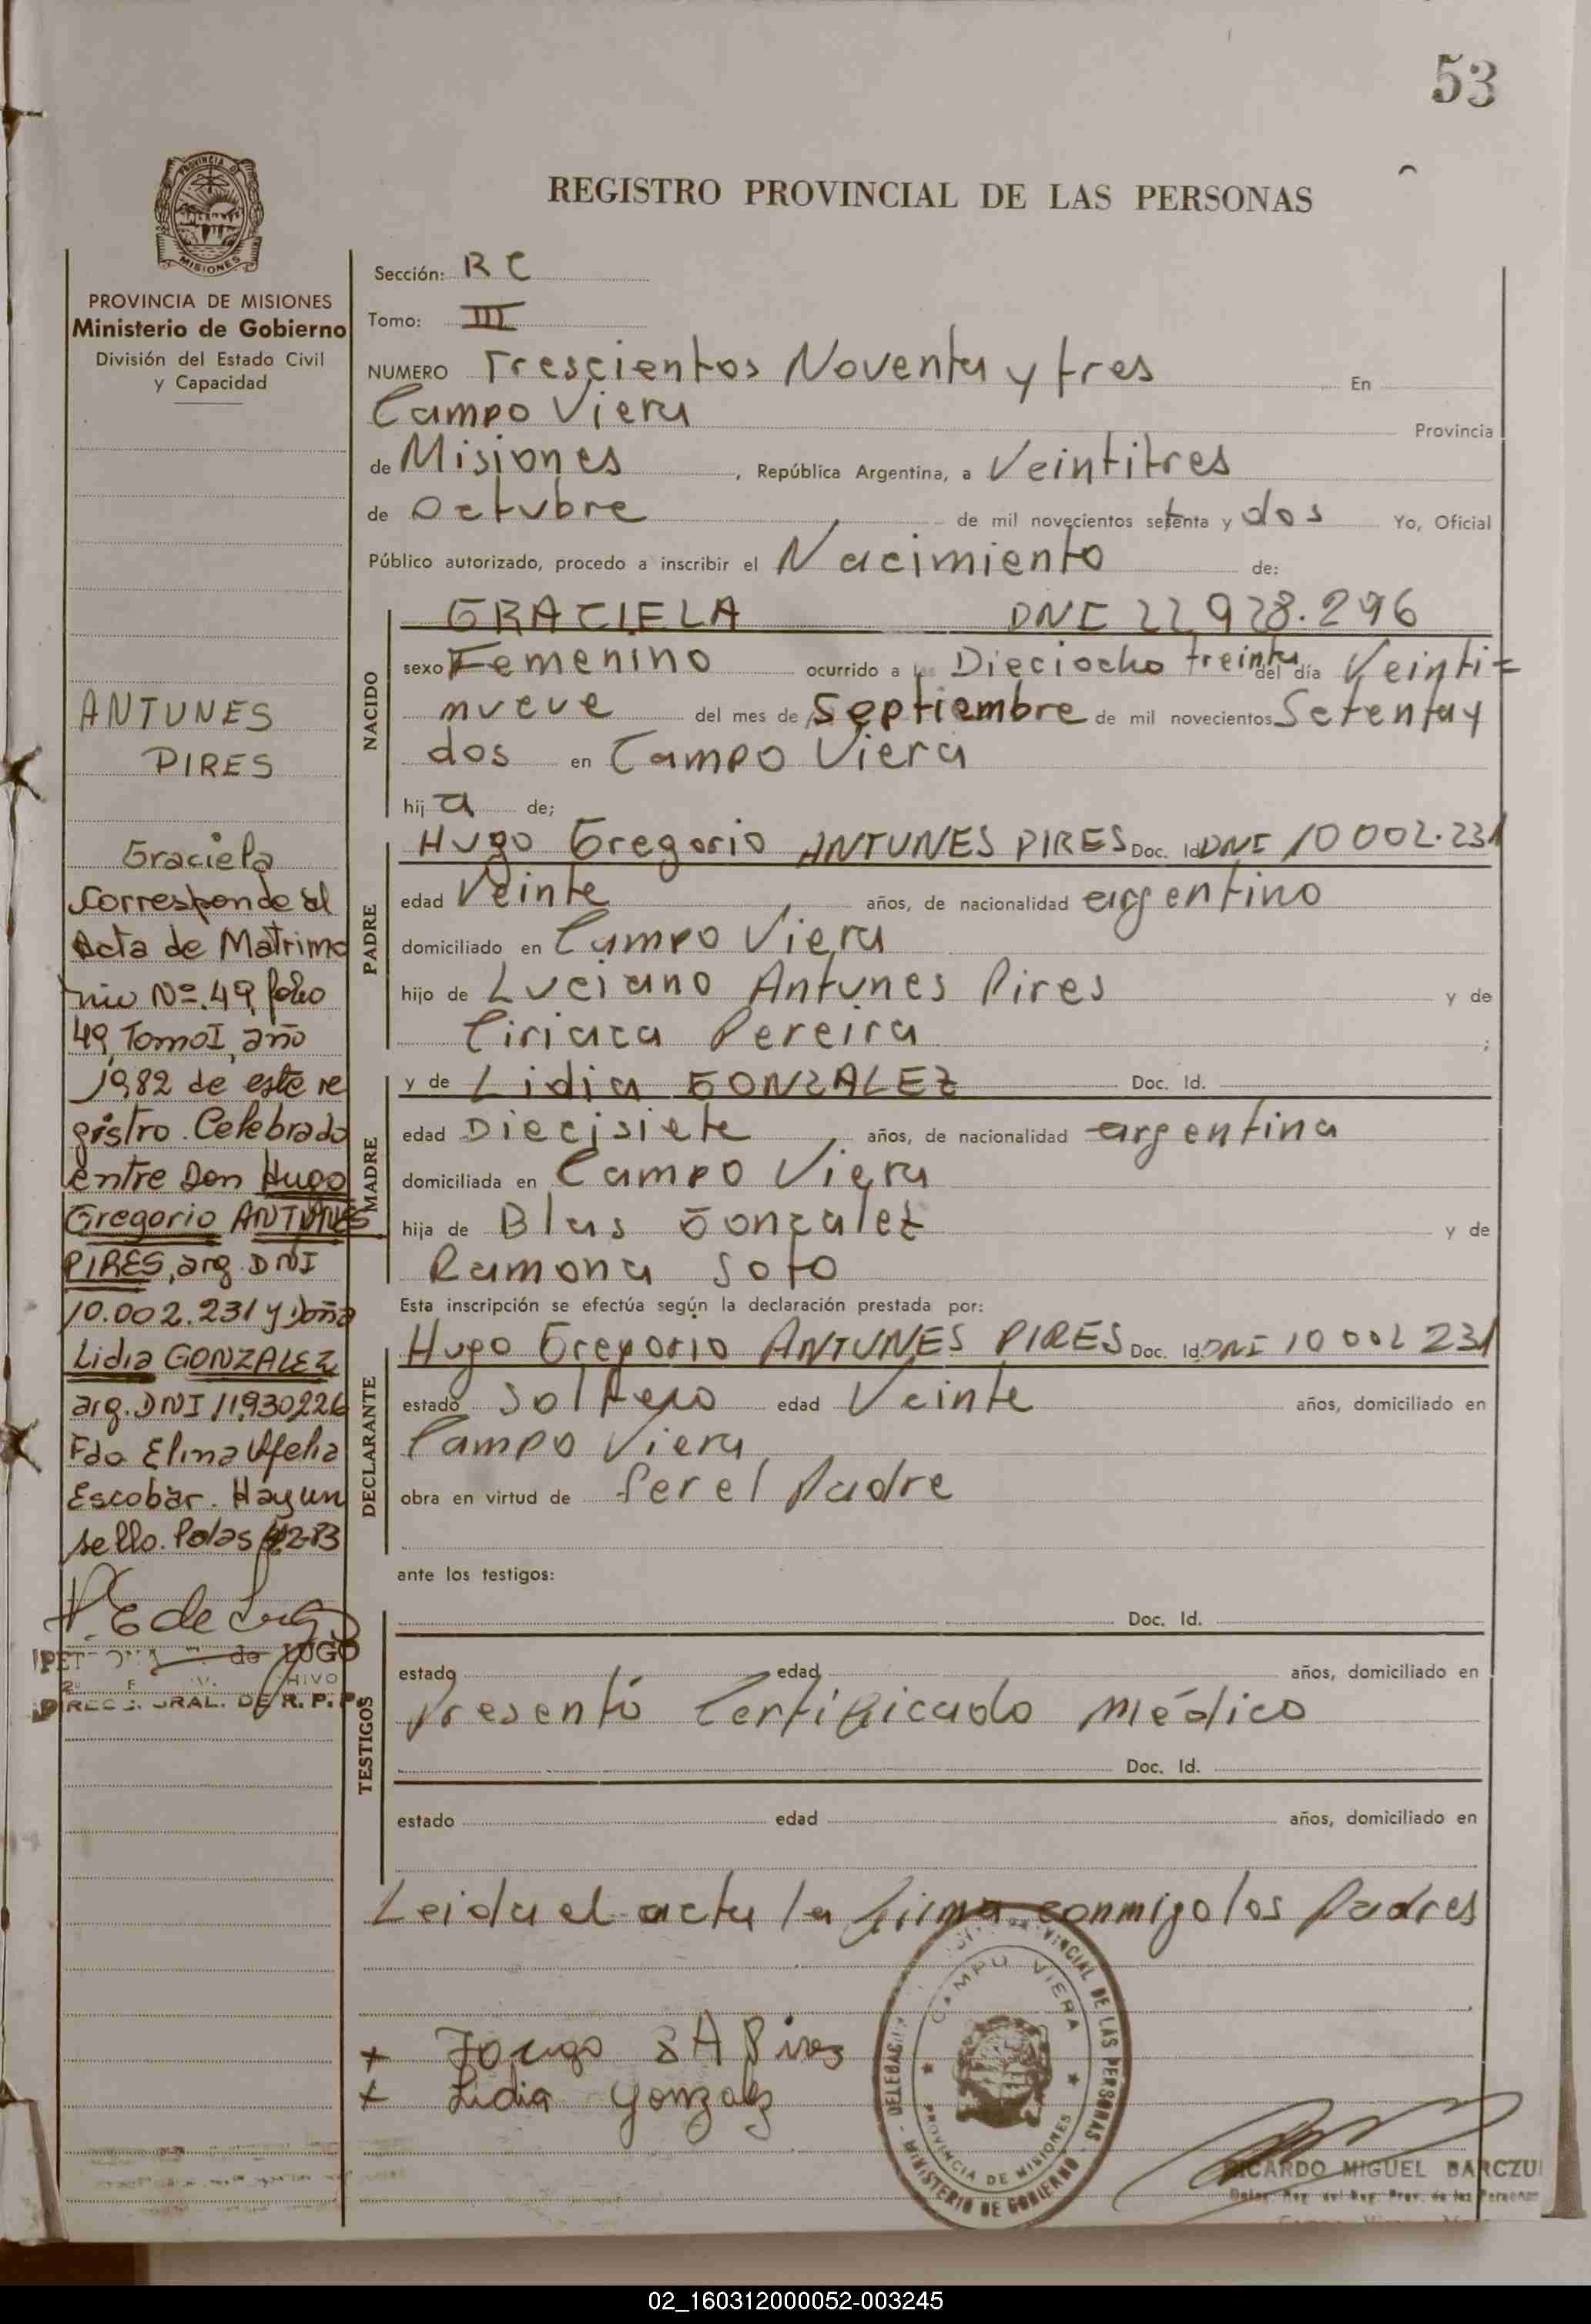 53
REGISTRO PROVINCIAL DE LAS PERSONAS
PROVINCIA DE
MISIONES
PROVINCIA DE MISIONES
Ministerio de Gobierno
División del Estado Civil
y Capacidad
ANTUNES
PIRES
Graciela
Corresponde al
Acta de Matrimo
nio Nº 49, folio
49, Tomo I, año
1982 de este re
gistro. Celebrado
entre Don Hugo
Gregorio ANTUNES
PIRES, arg. DNI
10.002.231 y Doña
Lidia GONZALEZ
arg. DNI 11930226
Fdo Elina Ofelia
Escobar. Hay un
sello. Pdas
de LUGO
DE R. P. P.
Sección: R C
Tomo: III
NUMERO Trescientos Noventa y tres En
Campo Viera Provincia
de Misiones, República Argentina, a Veintitres
de Octubre de mil novecientos setenta y dos Yo, Oficial
Público autorizado, procedo a inscribir el Nacimiento de:
NACIDO
GRACIELA DNI 22 928.296
sexo Femenino ocurrido a las Dieciocho treinta del día Veinti=
nueve del mes de Septiembre de mil novecientos Setenta y
dos en Campo Viera
hij a de;
PADRE
Hugo Gregorio ANTUNES PIRES Doc. Id. DNI 10 002.231
edad Veinte años, de nacionalidad argentino
domiciliado en Campo Viera
hijo de Luciano Antunes Pires y de
Ciriaca Pereira ;
MADRE
y de Lidia GONZALEZ Doc. Id.
edad Diecisiete años, de nacionalidad argentina
domiciliada en Campo Viera
hija de Blas Gonzalez y de
Ramona Soto
Esta inscripción se efectúa según la declaración prestada por:
DECLARANTE
Hugo Gregorio ANTUNES PIRES Doc. Id. DNI 10 002 231
estado Soltero edad Veinte años, domiciliado en
Campo Viera
obra en virtud de Ser el Padre
ante los testigos:
TESTIGOS
Doc. Id.
estado edad años, domiciliado en
Presentó Certificado Médico
Doc. Id.
estado edad años, domiciliado en
Leida el acta la firma conmigo los Padres
Pires
Lidia Gonzalez
PROVINCIAL DE LAS PERSONAS
MINISTERIO DE GOBIERNO - DELEGACION
CAMPO VIERA
PROVINCIA DE MISIONES
RICARDO MIGUEL BARCZU
02_160312000052-003245